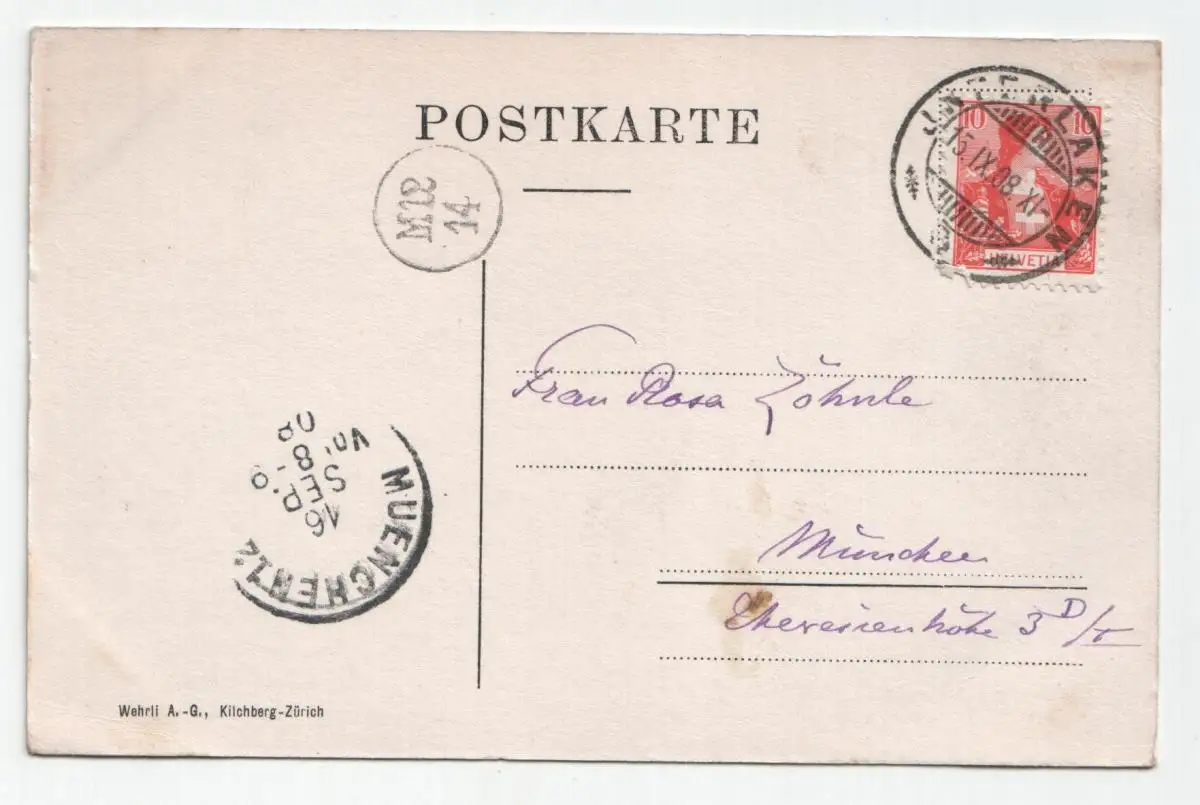 POSTKARTE
10 10
INTERLAKEN
15.IX.08.XI-
HELVETIA
M12
14
Frau Rosa Zöhnle
München
Theresienhöhe 3 D/I
MUENCHEN 12.
16
SEP. 9
8-
Vor.
08
Wehrli A.-G., Kilchberg-Zürich